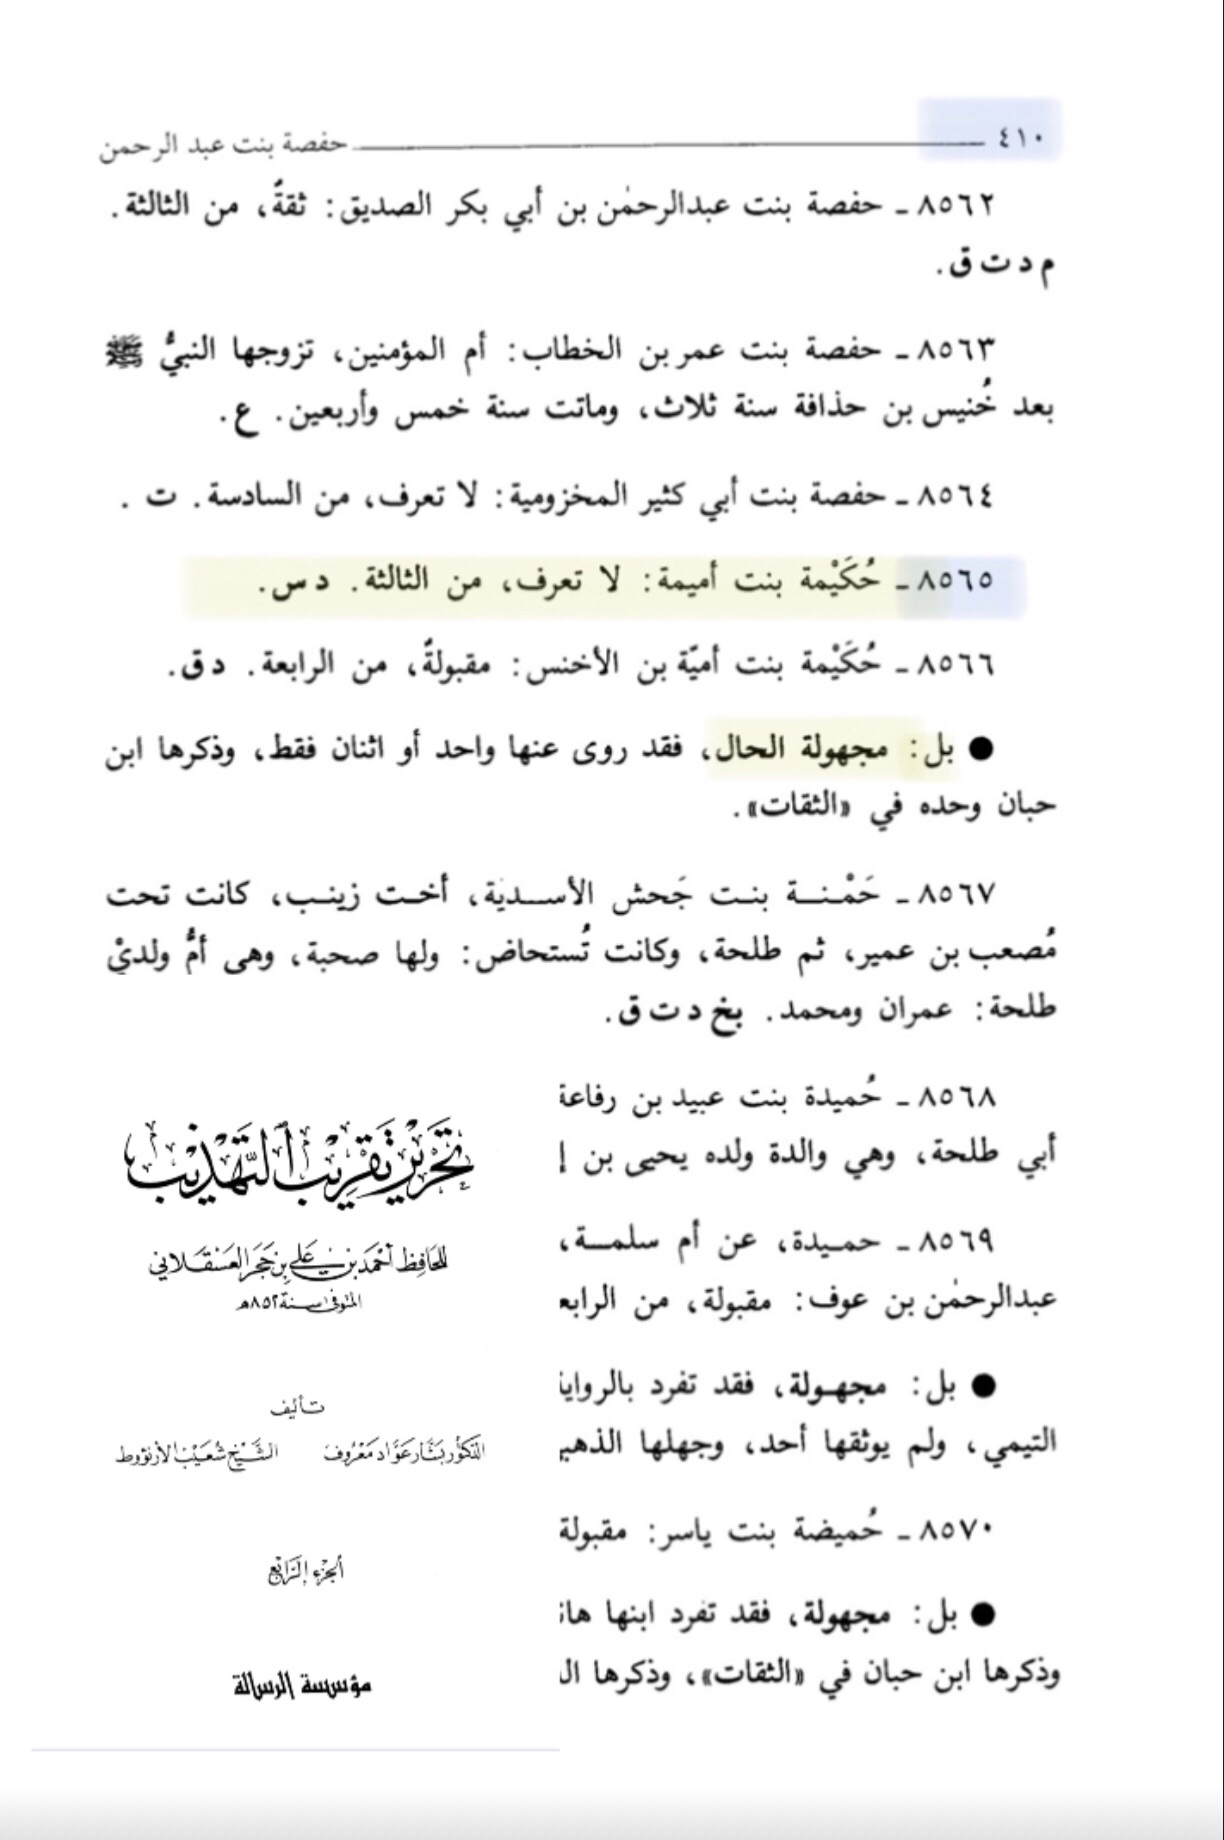 ٤١٠ حفصة بنت عبد الرحمن
٨٥٦٢ ـ حفصة بنت عبدالرحمٰن بن أبي بكر الصديق: ثقةٌ، من الثالثة.
م د ت ق.
٨٥٦٣ ـ حفصة بنت عمر بن الخطاب: أم المؤمنين، تزوجها النبيُّ ﷺ
بعد خُنيس بن حذافة سنة ثلاث، وماتت سنة خمس وأربعين. ع.
٨٥٦٤ ـ حفصة بنت أبي كثير المخزومية: لا تعرف، من السادسة. ت.
٨٥٦٥ ـ حُكَيْمة بنت أميمة: لا تعرف، من الثالثة. د س.
٨٥٦٦ ـ حُكَيْمة بنت أميّة بن الأخنس: مقبولةٌ، من الرابعة. د ق.
● بل: مجهولة الحال، فقد روى عنها واحد أو اثنان فقط، وذكرها ابن
حبان وحده في «الثقات».
٨٥٦٧ ـ حَمْنة بنت جَحش الأسدية، أخت زينب، كانت تحت
مُصعب بن عمير، ثم طلحة، وكانت تُستحاض: ولها صحبة، وهى أمُّ ولديْ
طلحة: عمران ومحمد. بخ د ت ق.
٨٥٦٨ ـ حُميدة بنت عبيد بن رفاعة
أبي طلحة، وهي والدة ولده يحيى بن إ
٨٥٦٩ ـ حميدة، عن أم سلمة،
عبدالرحمٰن بن عوف: مقبولة، من الرابع
● بل: مجهولة، فقد تفرد بالرواية
التيمي، ولم يوثقها أحد، وجهلها الذهبي
٨٥٧٠ ـ حُميضة بنت ياسر: مقبولة
● بل: مجهولة، فقد تفرد ابنها هان
وذكرها ابن حبان في «الثقات»، وذكرها الذ
تحرير تقريب التهذيب
للحافظ أحمد بن علي بن حجر العسقلاني
المتوفى سنة ٨٥٢هـ
تأليف
الدكتور بشار عواد معروف الشيخ شعيب الأرنؤوط
الجزء الرابع
مؤسسة الرسالة